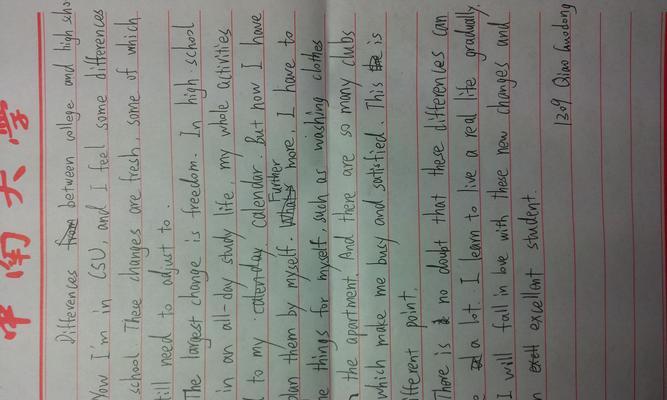 中南大学
Differences between college and high scho
Now I'm in CSU, and I feel some differences
school These changes are fresh, some of which
till need to adjust to.
The largest change is freedom. In high-school
in an all-day study life, my whole activities
to my calenday calendar. But now I have
plan them by myself. Further more, I have to
things for myself, such as washing clothes
the apartment. And there are so many clubs
which make me busy and satisfied. This is
ifferent point.
There is no doubt that these differences can
a lot. I learn to live a real life gradually.
I will fall in love with these new changes and
n excellent student.
1309 Qiao Guodong